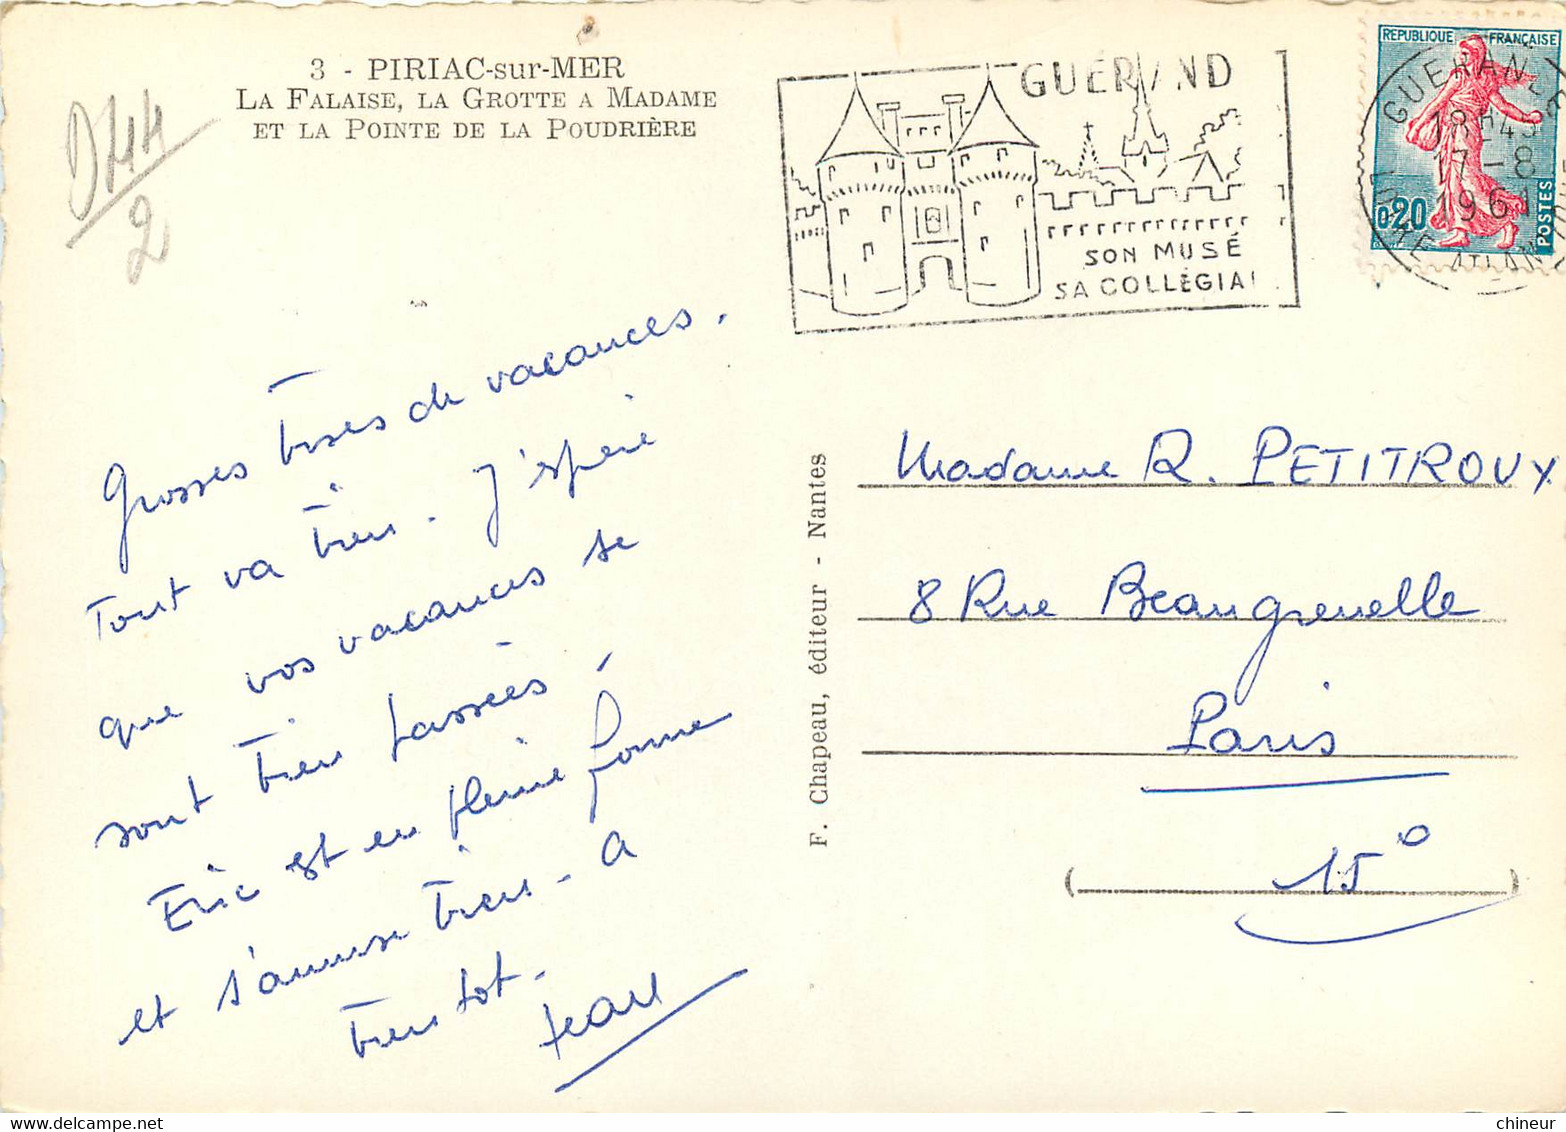 3 - PIRIAC-sur-MER
LA FALAISE, LA GROTTE A MADAME
ET LA POINTE DE LA POUDRIÈRE
D44
2
GUÉRAND
SON MUSÉ
SA COLLÉGIA
REPUBLIQUE FRANÇAISE
0,20
POSTES
GUERANDE
18H45
17-8
1961
LOIRE ATLANTIQUE
Grosses bises de vacances.
Tout va bien. J'espère
que vos vacances se
sont bien passées.
Eric est en pleine forme
et s'amuse bien. A
bientot.
Jean
F. Chapeau, éditeur - Nantes
Madame R. PETITROUX
8 Rue Beaugrenelle
Paris
( 15° )
chineur